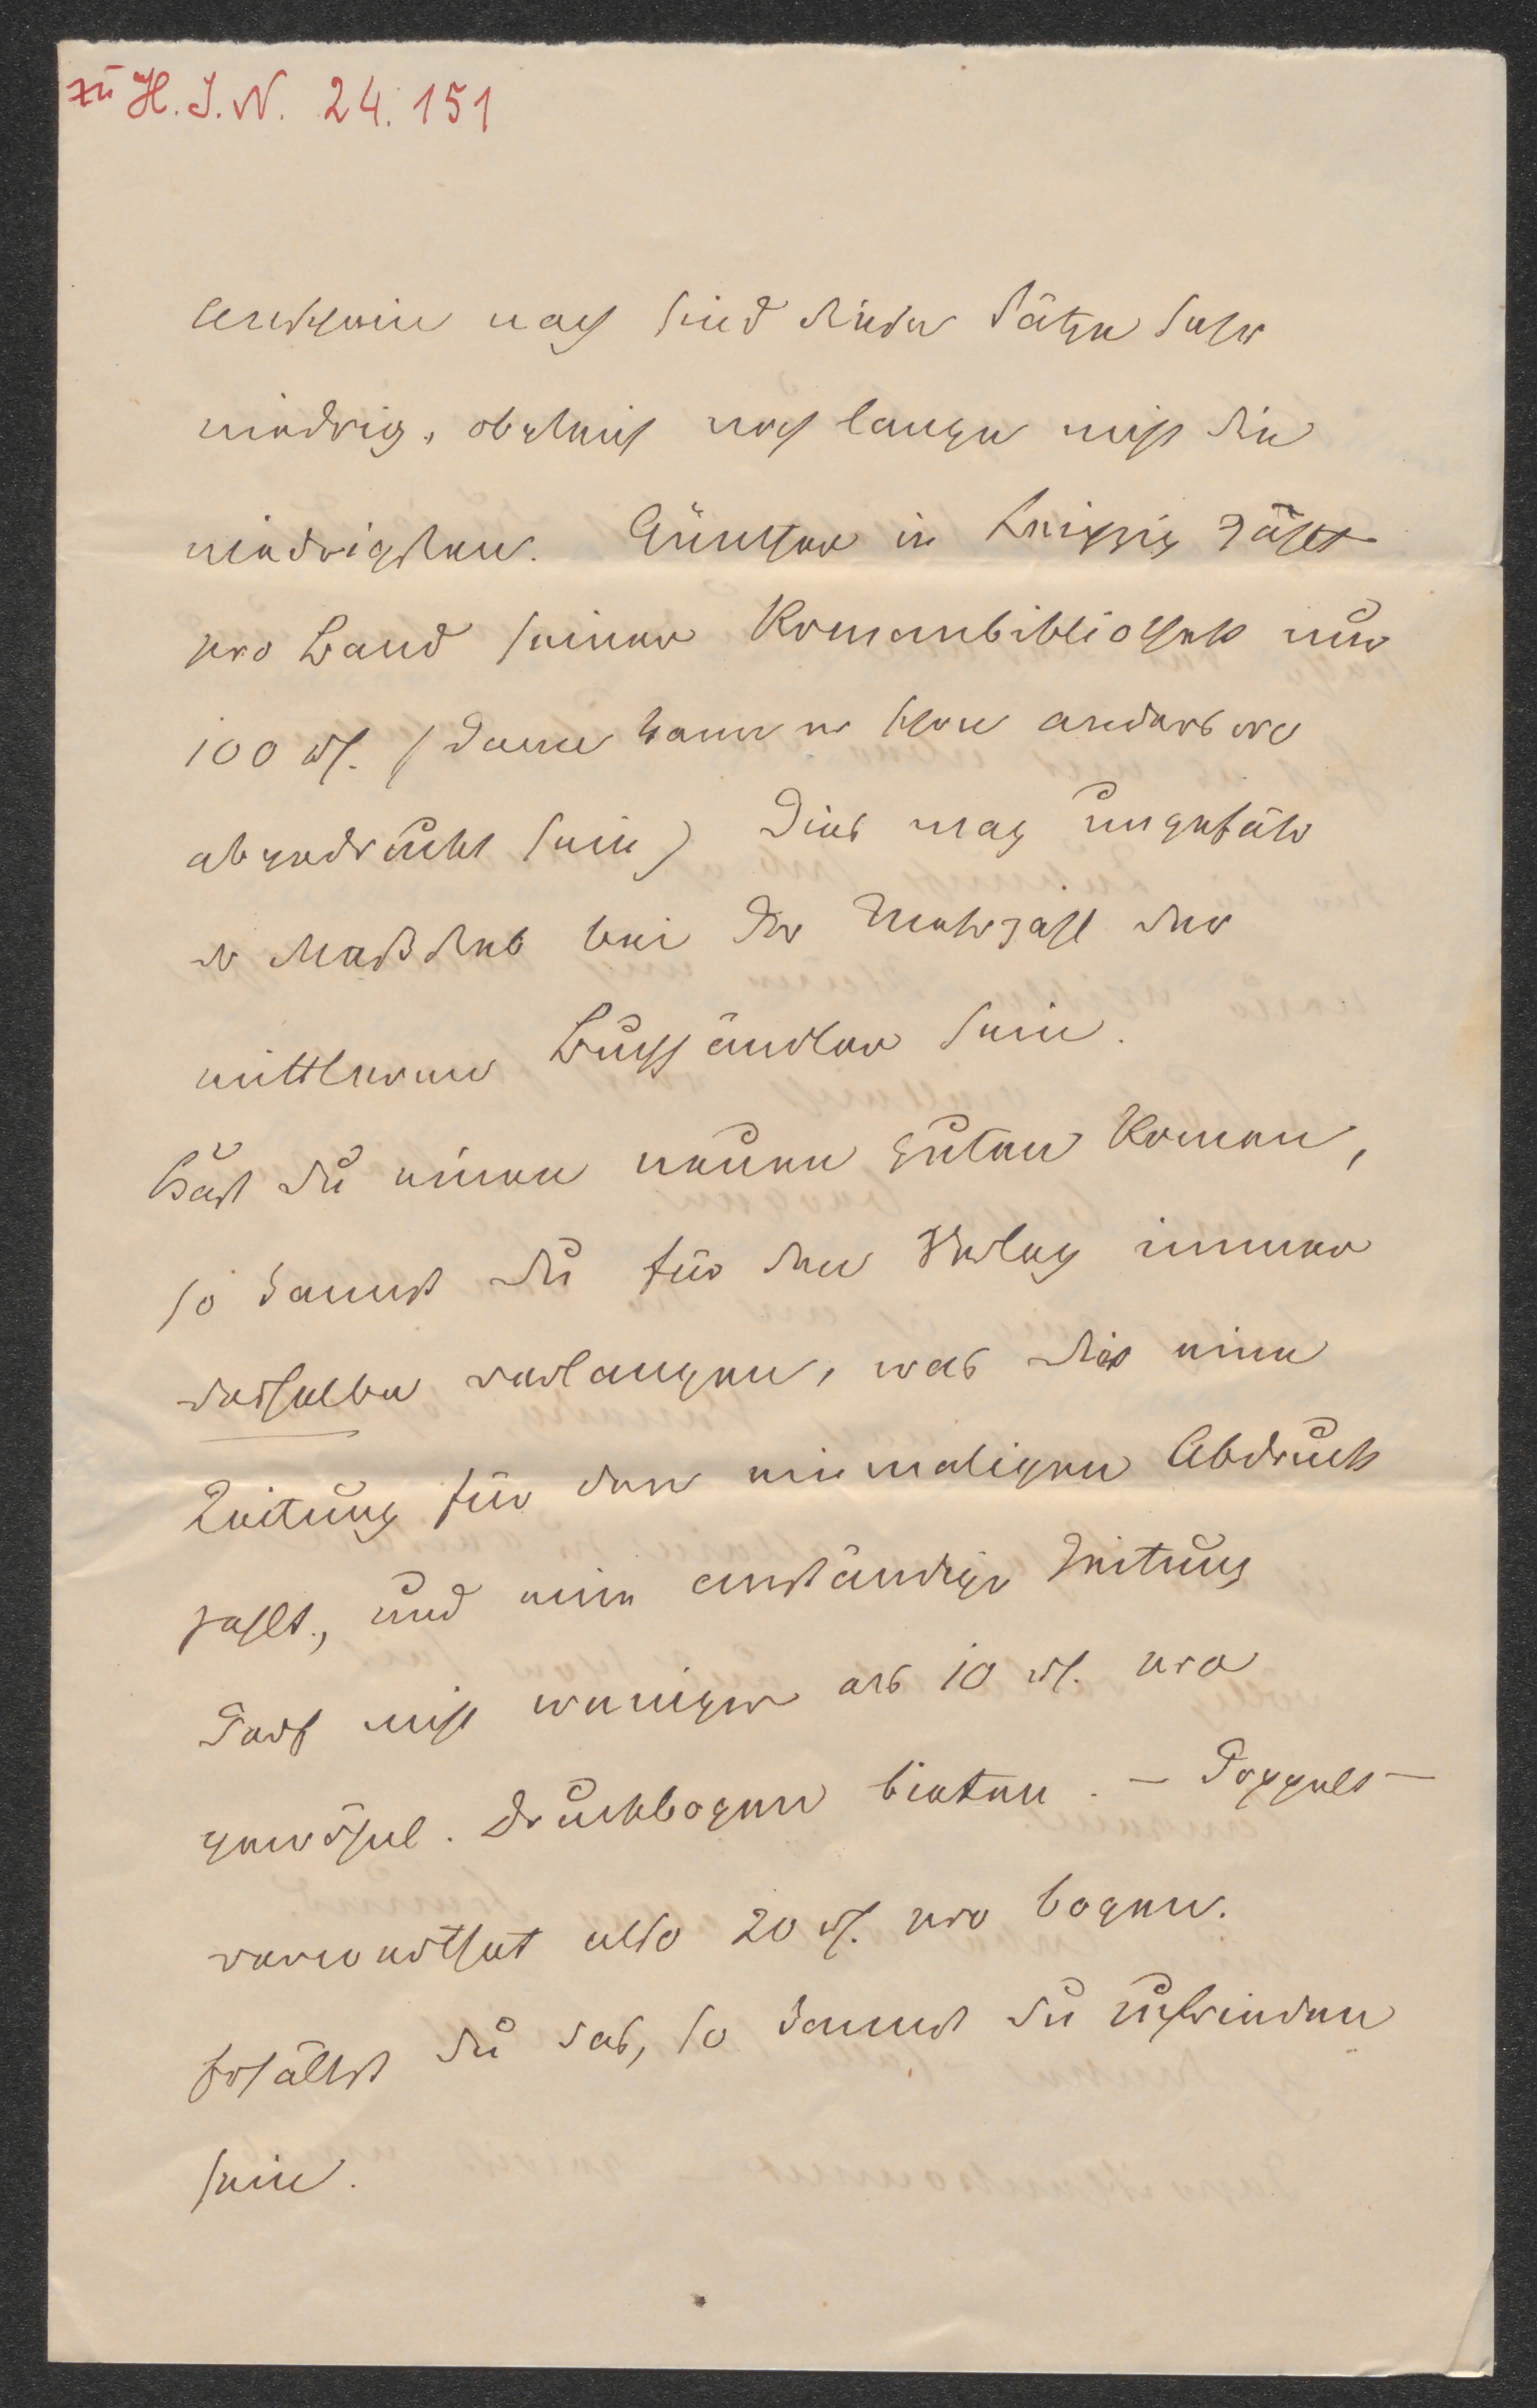 zu H. I. N. 24.151
Ansehein nach sind diese Sätze sehr
niedrig, obgleich noch lange nicht die
niedrigsten. Günther in Leipzig zahlt
pro Band seiner Romanbibliothek nur
100 fl. (dann kann er schon anderswo
abgedruckt sein) Dies mag ungefähr
der Maßstab bei der Mehrzahl der
mittleren Buchhändler sein.
Hast du einen neuen guten Roman,
so kannst du für den Verlag immer
dasselbe verlangen, was dir eine
Zeitung für den einmaligen Abdruck
zahlt, und eine anständige Zeitung
darf nicht weniger als 10 fl. pro
gewöhnl. Druckbogen bieten. — Doppelt
verwerthet also 20 fl. pro Bogen.
Erhältst du das, so kannst du zufrieden
sein.